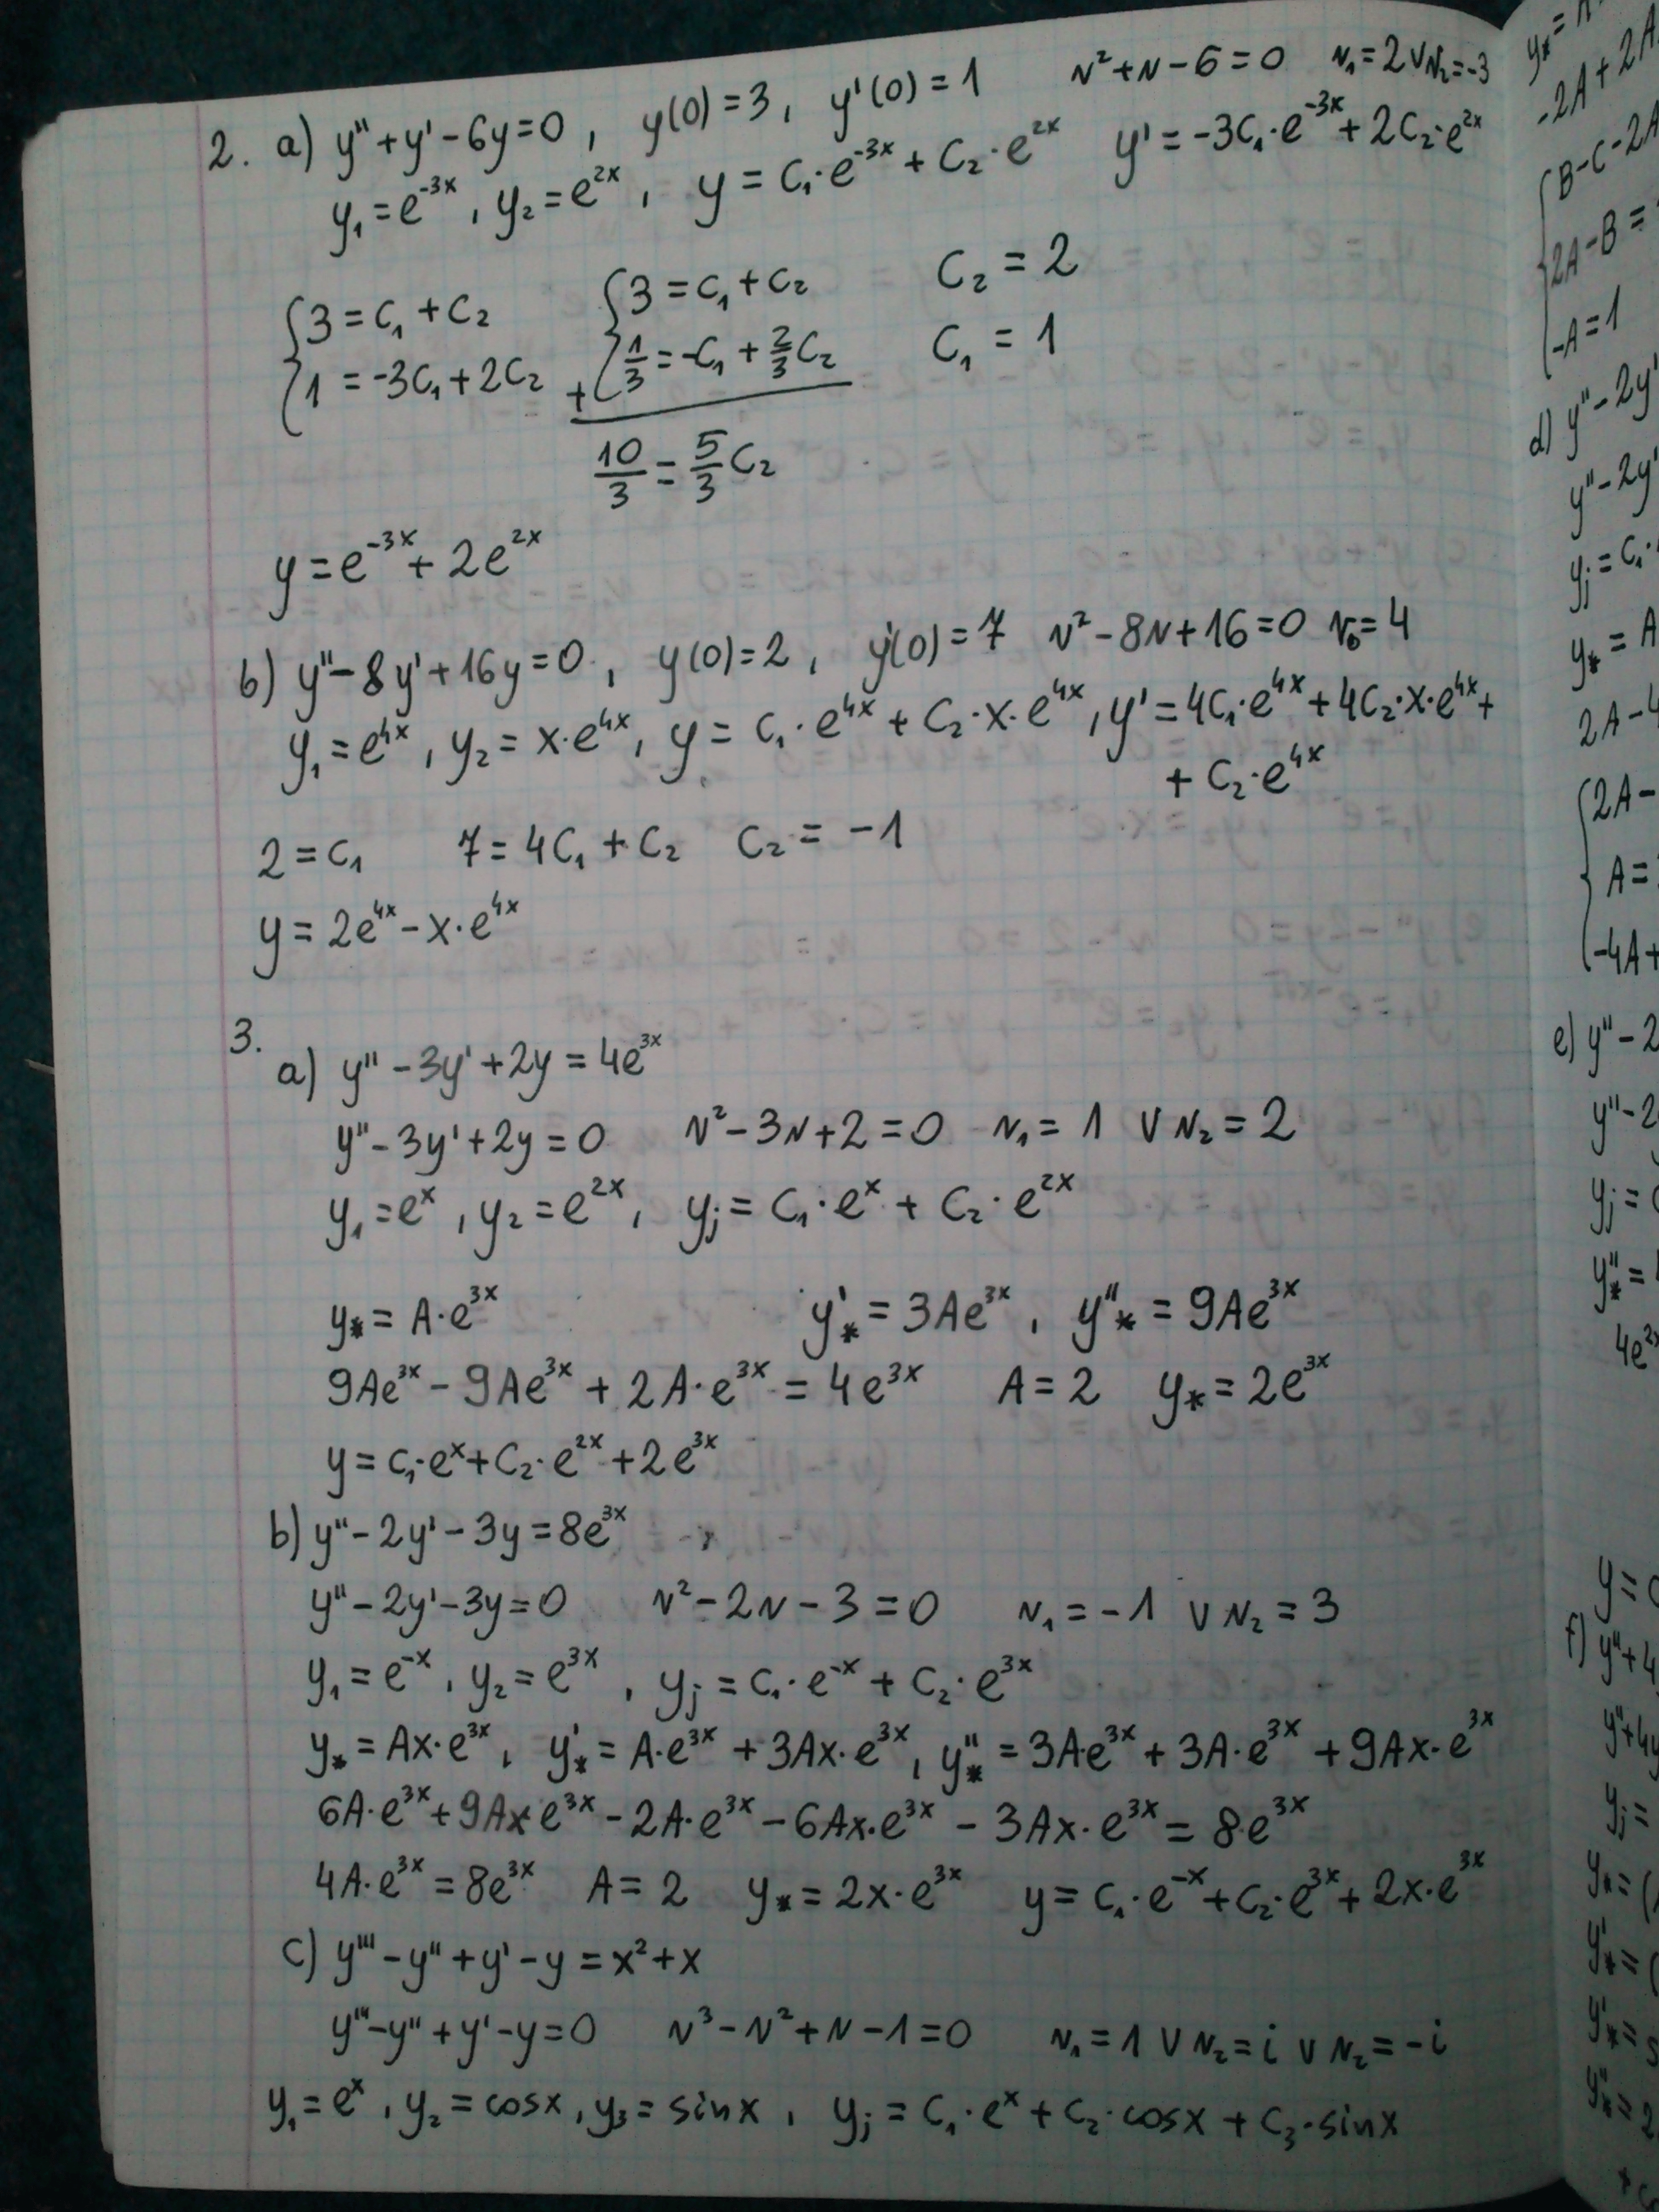 2. a) y'' + y' - 6y = 0 , y(0) = 3 , y'(0) = 1 r² + r - 6 = 0 r₁ = 2 ∨ r₂ = -3
y₁ = e^{-3x} , y₂ = e^{2x} , y = C₁·e^{-3x} + C₂·e^{2x} y' = -3C₁·e^{-3x} + 2C₂·e^{2x}
{3 = C₁ + C₂ {3 = C₁ + C₂ C₂ = 2
{1 = -3C₁ + 2C₂ + {1/3 = -C₁ + 2/3 C₂ C₁ = 1
10/3 = 5/3 C₂
y = e^{-3x} + 2e^{2x}
b) y'' - 8y' + 16y = 0 , y(0) = 2 , y'(0) = 7 r² - 8r + 16 = 0 r₀ = 4
y₁ = e^{4x} , y₂ = x·e^{4x} , y = C₁·e^{4x} + C₂·x·e^{4x} , y' = 4C₁·e^{4x} + 4C₂·x·e^{4x} +
+ C₂·e^{4x}
2 = C₁ 7 = 4C₁ + C₂ C₂ = -1
y = 2e^{4x} - x·e^{4x}
3.
a) y'' - 3y' + 2y = 4e^{3x}
y'' - 3y' + 2y = 0 r² - 3r + 2 = 0 r₁ = 1 ∨ r₂ = 2
y₁ = e^x , y₂ = e^{2x} , yⱼ = C₁·e^x + C₂·e^{2x}
y* = A·e^{3x} y'* = 3Ae^{3x} , y''* = 9Ae^{3x}
9Ae^{3x} - 9Ae^{3x} + 2A·e^{3x} = 4e^{3x} A = 2 y* = 2e^{3x}
y = C₁·e^x + C₂·e^{2x} + 2e^{3x}
b) y'' - 2y' - 3y = 8e^{3x}
y'' - 2y' - 3y = 0 r² - 2r - 3 = 0 r₁ = -1 ∨ r₂ = 3
y₁ = e^{-x} , y₂ = e^{3x} , yⱼ = C₁·e^{-x} + C₂·e^{3x}
y* = Ax·e^{3x} , y'* = A·e^{3x} + 3Ax·e^{3x} , y''* = 3A·e^{3x} + 3A·e^{3x} + 9Ax·e^{3x}
6A·e^{3x} + 9Ax·e^{3x} - 2A·e^{3x} - 6Ax·e^{3x} - 3Ax·e^{3x} = 8·e^{3x}
4A·e^{3x} = 8e^{3x} A = 2 y* = 2x·e^{3x} y = C₁·e^{-x} + C₂·e^{3x} + 2x·e^{3x}
c) y''' - y'' + y' - y = x² + x
y''' - y'' + y' - y = 0 r³ - r² + r - 1 = 0 r₁ = 1 ∨ r₂ = i ∨ r₂ = -i
y₁ = e^x , y₂ = cosx , y₃ = sinx , yⱼ = C₁·e^x + C₂·cosx + C₃·sinx
-2A + 2A
B - C - 2A
2A - B =
-A = 1
d) y'' - 2y'
y'' - 2y'
yⱼ = C₁·
y* = A
2A - 4
{2A -
A =
-4A +
e) y'' - 2
y'' - 2
yⱼ =
y''* =
4e^{2x}
y =
f) y'' + 4
y'' + 4y
yⱼ =
y* = (
y'* = (